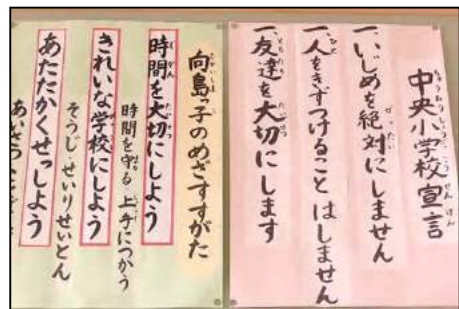 中央小学校宣言
一、いじめを絶対にしません
一、人をきずつけること はしません
一、友達を大切にします
向島っ子のめざすすがた
時間を大切にしよう
時間を守る・上手につかう
きれいな学校にしよう
そうじ・せいりせいとん
あたたかくせっしよう